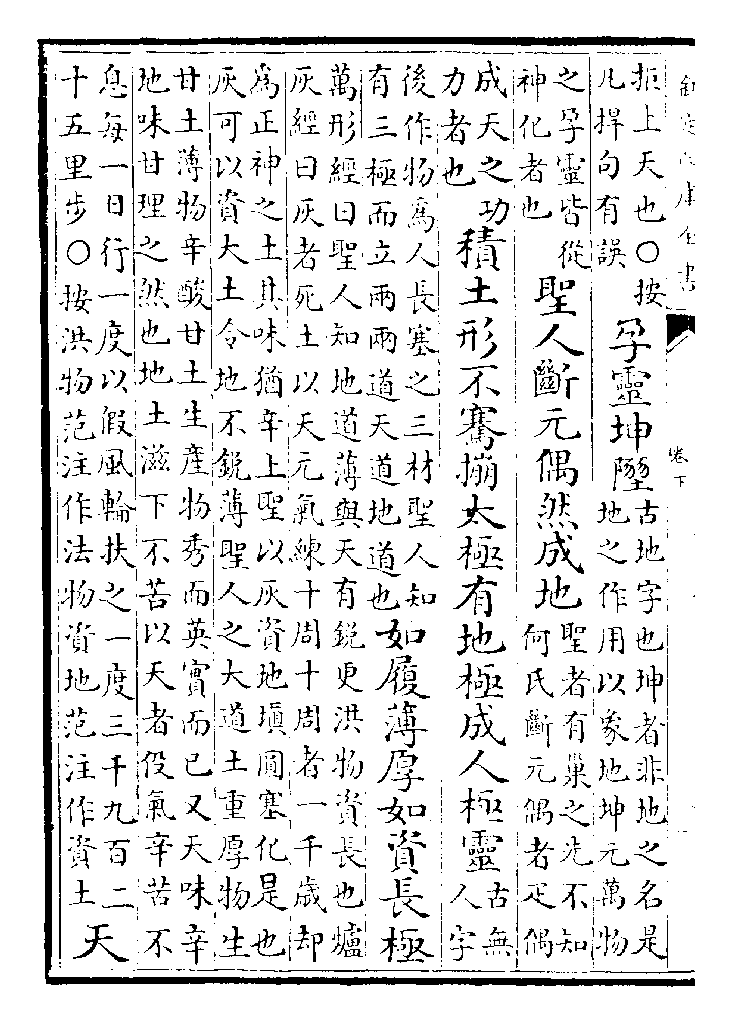 欽定四庫全書
卷下
拒上天也○按
凢捍句有誤
孕靈坤墬
古地字也坤者非地之名是
地之作用以象地坤元萬物
之孕靈皆從
神化者也
聖人斷元偶然成地
聖者有巢之先不知
何氏斷元偶者疋偶
成天之功
力者也
積土形不騫太極有地極成人極靈
古無
人字
後作物為人長塞之三材聖人知
有三極而立兩兩道天道地道也
如履薄厚如資長極
萬形經曰聖人知地道薄與天有鋭更洪物資長也爐
灰經曰灰者死土以天元氣練十周十周者一千歲却
為正神之土其味猶辛上聖以灰資地塤圓塞化是也
灰可以資大土令地不鋭薄聖人之大道土重厚物生
甘土薄物辛酸甘土生産物秀而英實而已又天味辛
地味甘理之然也地土滋下不苦以天者假氣辛苦不
息每一日行一度以假風輪扶之一度三千九百二
十五里步○按洪物范注作法物資地范注作資土
天